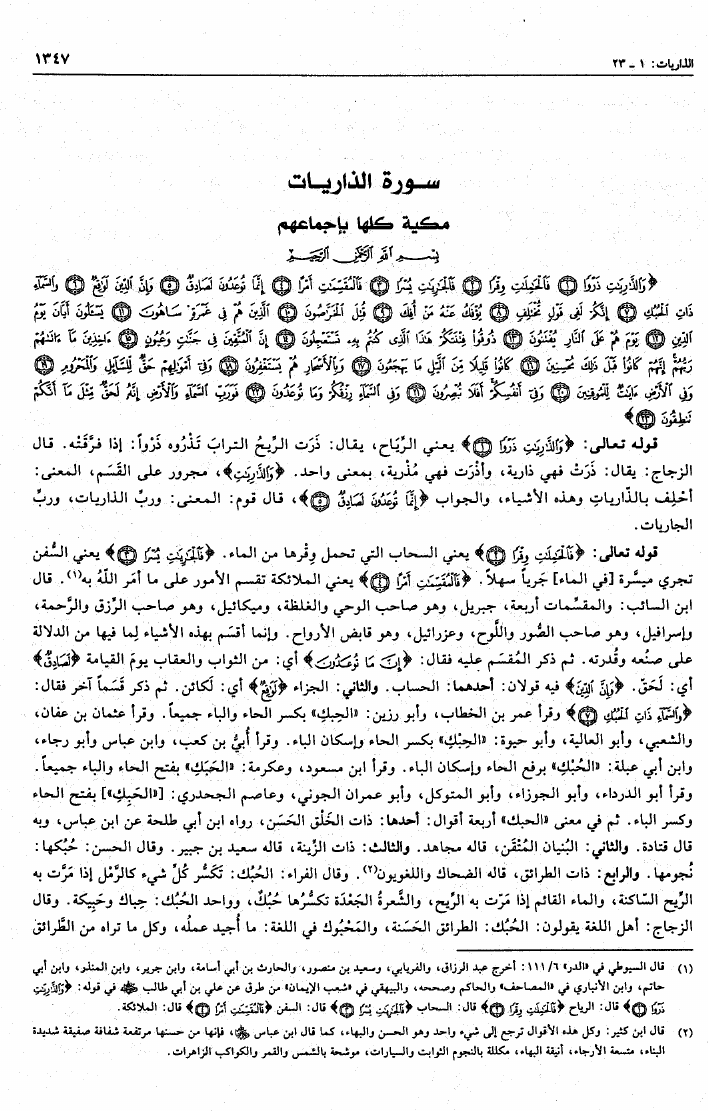 الذاريات: ١ ـ ٢٣
١٣٤٧
سورة الذاريات
مكية كلها بإجماعهم
بِسْمِ اللَّهِ الرَّحْمَنِ الرَّحِيمِ
﴿وَالذَّارِيَاتِ ذَرْوًا ﴿١﴾ فَالْحَامِلَاتِ وِقْرًا ﴿٢﴾ فَالْجَارِيَاتِ يُسْرًا ﴿٣﴾ فَالْمُقَسِّمَاتِ أَمْرًا ﴿٤﴾ إِنَّمَا تُوعَدُونَ لَصَادِقٌ ﴿٥﴾ وَإِنَّ الدِّينَ لَوَاقِعٌ ﴿٦﴾ وَالسَّمَاءِ
ذَاتِ الْحُبُكِ ﴿٧﴾ إِنَّكُمْ لَفِي قَوْلٍ مُخْتَلِفٍ ﴿٨﴾ يُؤْفَكُ عَنْهُ مَنْ أُفِكَ ﴿٩﴾ قُتِلَ الْخَرَّاصُونَ ﴿١٠﴾ الَّذِينَ هُمْ فِي غَمْرَةٍ سَاهُونَ ﴿١١﴾ يَسْأَلُونَ أَيَّانَ يَوْمُ
الدِّينِ ﴿١٢﴾ يَوْمَ هُمْ عَلَى النَّارِ يُفْتَنُونَ ﴿١٣﴾ ذُوقُوا فِتْنَتَكُمْ هَذَا الَّذِي كُنْتُمْ بِهِ تَسْتَعْجِلُونَ ﴿١٤﴾ إِنَّ الْمُتَّقِينَ فِي جَنَّاتٍ وَعُيُونٍ ﴿١٥﴾ آخِذِينَ مَا آتَاهُمْ
رَبُّهُمْ إِنَّهُمْ كَانُوا قَبْلَ ذَلِكَ مُحْسِنِينَ ﴿١٦﴾ كَانُوا قَلِيلًا مِنَ اللَّيْلِ مَا يَهْجَعُونَ ﴿١٧﴾ وَبِالْأَسْحَارِ هُمْ يَسْتَغْفِرُونَ ﴿١٨﴾ وَفِي أَمْوَالِهِمْ حَقٌّ لِلسَّائِلِ وَالْمَحْرُومِ ﴿١٩﴾
وَفِي الْأَرْضِ آيَاتٌ لِلْمُوقِنِينَ ﴿٢٠﴾ وَفِي أَنْفُسِكُمْ أَفَلَا تُبْصِرُونَ ﴿٢١﴾ وَفِي السَّمَاءِ رِزْقُكُمْ وَمَا تُوعَدُونَ ﴿٢٢﴾ فَوَرَبِّ السَّمَاءِ وَالْأَرْضِ إِنَّهُ لَحَقٌّ مِثْلَ مَا أَنَّكُمْ
تَنْطِقُونَ ﴿٢٣﴾﴾
قوله تعالى: ﴿وَالذَّارِيَاتِ ذَرْوًا ﴿١﴾﴾ يعني الرِّياح، يقال: ذَرَت الرِّيحُ الترابَ تَذْرُوه ذَرْواً: إذا فرَّقَتْه. قال
الزجاج: يقال: ذَرَتْ فهي ذارية، وأذْرَت فهي مُذْرية، بمعنى واحد. ﴿وَالذَّارِيَاتِ﴾، مجرور على القَسَم، المعنى:
أحْلِف بالذّاريات وهذه الأشياء، والجواب ﴿إِنَّمَا تُوعَدُونَ لَصَادِقٌ ﴿٥﴾﴾، قال قوم: المعنى: وربِّ الذاريات، وربِّ
الجاريات.
قوله تعالى: ﴿فَالْحَامِلَاتِ وِقْرًا ﴿٢﴾﴾ يعني السحاب التي تحمل وِقْرها من الماء. ﴿فَالْجَارِيَاتِ يُسْرًا ﴿٣﴾﴾ يعني السُّفن
تجري ميسَّرة [في الماء] جَرياً سهلاً. ﴿فَالْمُقَسِّمَاتِ أَمْرًا ﴿٤﴾﴾ يعني الملائكة تقسم الأمور على ما أمَر اللهُ به(١). قال
ابن السائب: والمقسِّمات أربعة، جبريل، وهو صاحب الوحي والغلظة، وميكائيل، وهو صاحب الرِّزق والرَّحمة،
وإسرافيل، وهو صاحب الصُّور واللَّوح، وعزرائيل، وهو قابض الأرواح. وإنما أقسَم بهذه الأشياء لِما فيها من الدلالة
على صنعه وقُدرته. ثم ذكر المُقسَم عليه فقال: ﴿إِنَّمَا تُوعَدُونَ﴾ أي: من الثواب والعقاب يومَ القيامة ﴿لَصَادِقٌ﴾
أي: لَحَقّ. ﴿وَإِنَّ الدِّينَ﴾ فيه قولان: أحدهما: الحساب. والثاني: الجزاء ﴿لَوَاقِعٌ﴾ أي: لَكائن. ثم ذكر قَسَماً آخر فقال:
﴿وَالسَّمَاءِ ذَاتِ الْحُبُكِ ﴿٧﴾﴾ وقرأ عمر بن الخطاب، وأبو رزين: «الحِبِكِ» بكسر الحاء والباء جميعاً. وقرأ عثمان بن عفان،
والشعبي، وأبو العالية، وأبو حيوة: «الحِبْكِ» بكسر الحاء وإسكان الباء. وقرأ أُبيُّ بن كعب، وابن عباس وأبو رجاء،
وابن أبي عبلة: «الحُبْكِ» برفع الحاء وإسكان الباء. وقرأ ابن مسعود، وعكرمة: «الحَبَكِ» بفتح الحاء والباء جميعاً.
وقرأ أبو الدرداء، وأبو الجوزاء، وأبو المتوكل، وأبو عمران الجوني، وعاصم الجحدري: [«الحَبِكِ»] بفتح الحاء
وكسر الباء. ثم في معنى «الحبك» أربعة أقوال: أحدها: ذات الخَلْق الحَسَن، رواه ابن أبي طلحة عن ابن عباس، وبه
قال قتادة. والثاني: البُنيان المُتْقَن، قاله مجاهد. والثالث: ذات الزِّينة، قاله سعيد بن جبير. وقال الحسن: حُبُكها:
نُجومها. والرابع: ذات الطرائق، قاله الضحاك واللغويون(٢). وقال الفراء: الحُبُك: تَكَسُّر كُلِّ شيء كالرَّمْل إذا مَرَّت به
الرِّيح السّاكنة، والماء القائم إذا مَرَت به الرِّيح، والشَّعرةُ الجَعْدَة تكسُّرُها حُبُكٌ، وواحد الحُبُك: حِباك وحَبِيكة. وقال
الزجاج: أهل اللغة يقولون: الحُبُك: الطرائق الحَسَنة، والمَحْبُوك في اللغة: ما أُجيد عملُه، وكل ما تراه من الطَّرائق
(١) قال السيوطي في «الدر» ٦/١١١: أخرج عبد الرزاق، والفريابي، وسعيد بن منصور، والحارث بن أبي أسامة، وابن جرير، وابن المنذر، وابن أبي
حاتم، وابن الأنباري في «المصاحف» والحاكم وصححه، والبيهقي في «شعب الإيمان» من طرق عن علي بن أبي طالب في قوله: ﴿وَالذَّارِيَاتِ
ذَرْوًا ﴿١﴾﴾ قال: الرياح ﴿فَالْحَامِلَاتِ وِقْرًا ﴿٢﴾﴾ قال: السحاب ﴿فَالْجَارِيَاتِ يُسْرًا ﴿٣﴾﴾ قال: السفن ﴿فَالْمُقَسِّمَاتِ أَمْرًا ﴿٤﴾﴾ قال: الملائكة.
(٢) قال ابن كثير: وكل هذه الأقوال ترجع إلى شيء واحد وهو الحسن والبهاء، كما قال ابن عباس، فإنها من حسنها مرتفعة شفافة صفيقة شديدة
البناء، متسعة الأرجاء، أنيقة البهاء، مكللة بالنجوم الثوابت والسيارات، موشحة بالشمس والقمر والكواكب الزاهرات.